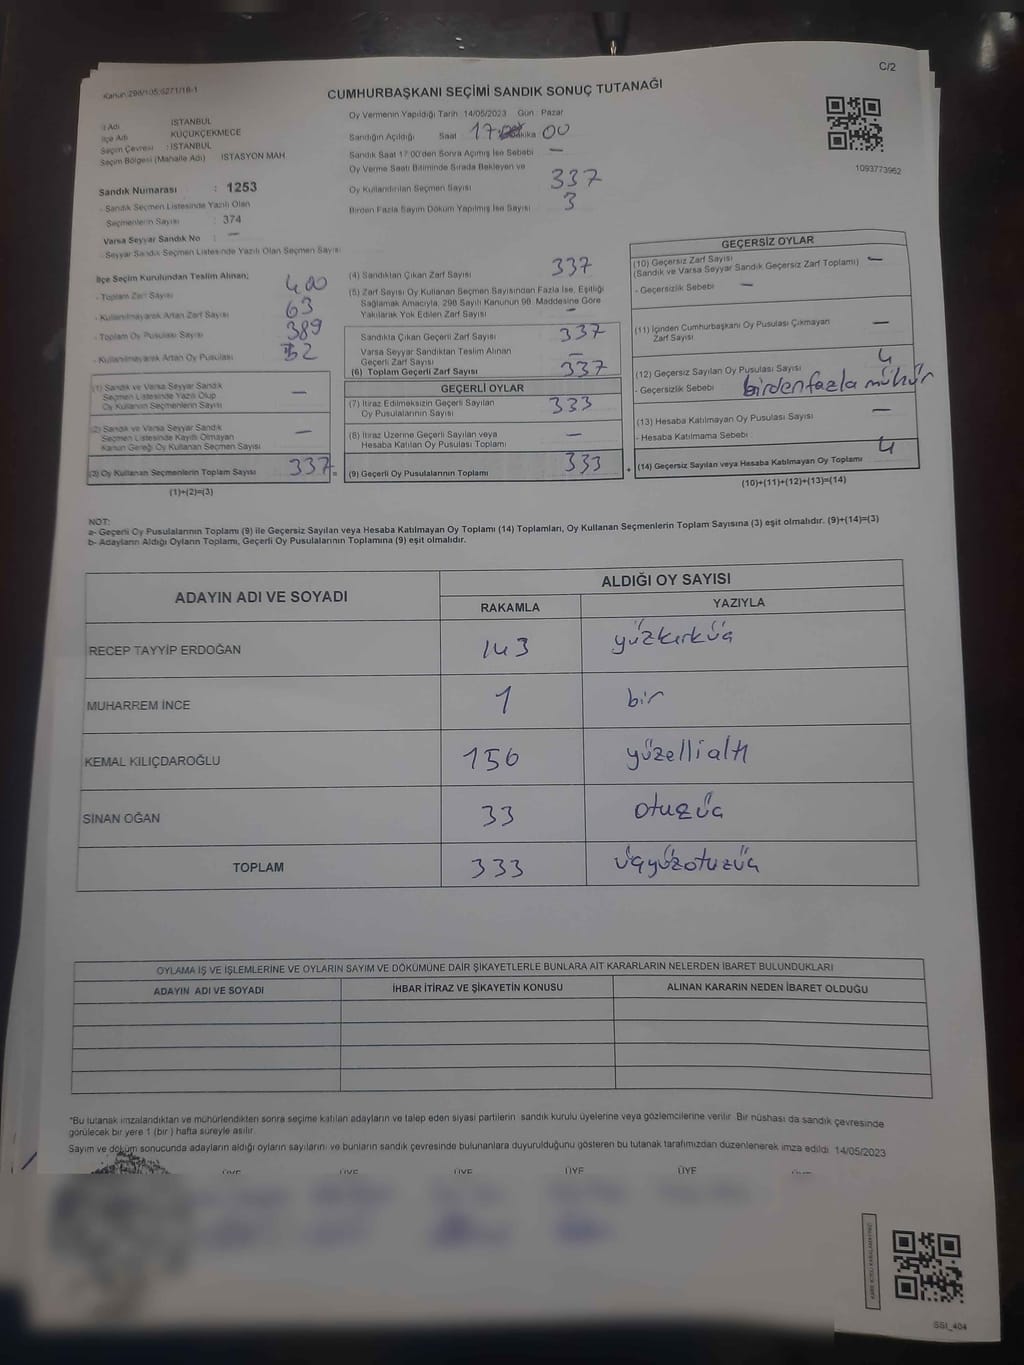 C/2
Kanun:298/105,6271/18-1
CUMHURBAŞKANI SEÇİMİ SANDIK SONUÇ TUTANAĞI
İl Adı İSTANBUL
İlçe Adı KÜÇÜKÇEKMECE
Seçim Çevresi : İSTANBUL
Seçim Bölgesi (Mahalle Adı) İSTASYON MAH
Sandık Numarası : 1253
- Sandık Seçmen Listesinde Yazılı Olan
Seçmenlerin Sayısı : 374
Varsa Seyyar Sandık No : —
- Seyyar Sandık Seçmen Listesinde Yazılı Olan Seçmen Sayısı
Oy Vermenin Yapıldığı Tarih 14/05/2023 Gün : Pazar
Sandığın Açıldığı Saat 17: Dakika 00
Sandık Saat 17:00'den Sonra Açımış İse Sebebi —
Oy Verme Saati Bitiminde Sırada Bekleyen ve
Oy Kullandırılan Seçmen Sayısı 337
Birden Fazla Sayım Döküm Yapılmış İse Sayısı 3
1093773962
İlçe Seçim Kurulundan Teslim Alınan;
- Toplam Zarf Sayısı 400
- Kullanılmayarak Artan Zarf Sayısı 63
- Toplam Oy Pusulası Sayısı 389
- Kullanılmayarak Artan Oy Pusulası 52
(1) Sandık ve Varsa Seyyar Sandık
Seçmen Listesinde Yazılı Olup
Oy Kullanan Seçmenlerin Sayısı —
(2) Sandık ve Varsa Seyyar Sandık
Seçmen Listesinde Kayıtlı Olmayan
Kanun Gereği Oy Kullanan Seçmen Sayısı —
(3) Oy Kullanan Seçmenlerin Toplam Sayısı 337 =
(1)+(2)=(3)
(4) Sandıktan Çıkan Zarf Sayısı 337
(5) Zarf Sayısı Oy Kullanan Seçmen Sayısından Fazla İse, Eşitliği
Sağlamak Amacıyla, 298 Sayılı Kanunun 98. Maddesine Göre
Yakılarak Yok Edilen Zarf Sayısı —
Sandıkta Çıkan Geçerli Zarf Sayısı 337
Varsa Seyyar Sandıktan Teslim Alınan
Geçerli Zarf Sayısı —
(6) Toplam Geçerli Zarf Sayısı 337
GEÇERLİ OYLAR
(7) İtiraz Edilmeksizin Geçerli Sayılan
Oy Pusulalarının Sayısı 333
(8) İtiraz Üzerine Geçerli Sayılan veya
Hesaba Katılan Oy Pusulası Toplamı —
(9) Geçerli Oy Pusulalarının Toplamı 333 +
GEÇERSİZ OYLAR
(10) Geçersiz Zarf Sayısı
(Sandık ve Varsa Seyyar Sandık Geçersiz Zarf Toplamı) —
- Geçersizlik Sebebi —
(11) İçinden Cumhurbaşkanı Oy Pusulası Çıkmayan
Zarf Sayısı —
(12) Geçersiz Sayılan Oy Pusulası Sayısı 4
- Geçersizlik Sebebi birdenfazla mühür
(13) Hesaba Katılmayan Oy Pusulası Sayısı —
- Hesaba Katılmama Sebebi
(14) Geçersiz Sayılan veya Hesaba Katılmayan Oy Toplamı 4
(10)+(11)+(12)+(13)=(14)
NOT:
a- Geçerli Oy Pusulalarının Toplamı (9) ile Geçersiz Sayılan veya Hesaba Katılmayan Oy Toplamı (14) Toplamları, Oy Kullanan Seçmenlerin Toplam Sayısına (3) eşit olmalıdır. (9)+(14)=(3)
b- Adayların Aldığı Oyların Toplamı, Geçerli Oy Pusulalarının Toplamına (9) eşit olmalıdır.
ADAYIN ADI VE SOYADI ALDIĞI OY SAYISI
RAKAMLA YAZIYLA
RECEP TAYYİP ERDOĞAN 143 yüzkırküç
MUHARREM İNCE 1 bir
KEMAL KILIÇDAROĞLU 156 yüzellialtı
SİNAN OĞAN 33 otuzüç
TOPLAM 333 üçyüzotuzüç
OYLAMA İŞ VE İŞLEMLERİNE VE OYLARIN SAYIM VE DÖKÜMÜNE DAİR ŞİKAYETLERLE BUNLARA AİT KARARLARIN NELERDEN İBARET BULUNDUKLARI
ADAYIN ADI VE SOYADI İHBAR İTİRAZ VE ŞİKAYETİN KONUSU ALINAN KARARIN NEDEN İBARET OLDUĞU
*Bu tutanak imzalandıktan ve mühürlendikten sonra seçime katılan adayların ve talep eden siyasi partilerin sandık kurulu üyelerine veya gözlemcilerine verilir. Bir nüshası da sandık çevresinde
görülecek bir yere 1 (bir) hafta süreyle asılır.
Sayım ve döküm sonucunda adayların aldığı oyların sayılarını ve bunların sandık çevresinde bulunanlara duyurulduğunu gösteren bu tutanak tarafımızdan düzenlenerek imza edildi. 14/05/2023
ÜYE ÜYE ÜYE ÜYE ÜYE
SSI_404